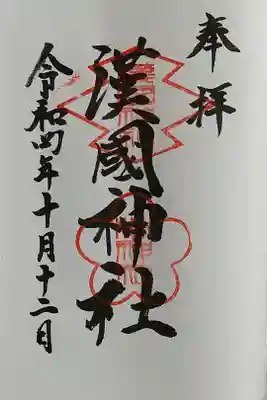 奉拝
漢國神社
令和四年十月十二日